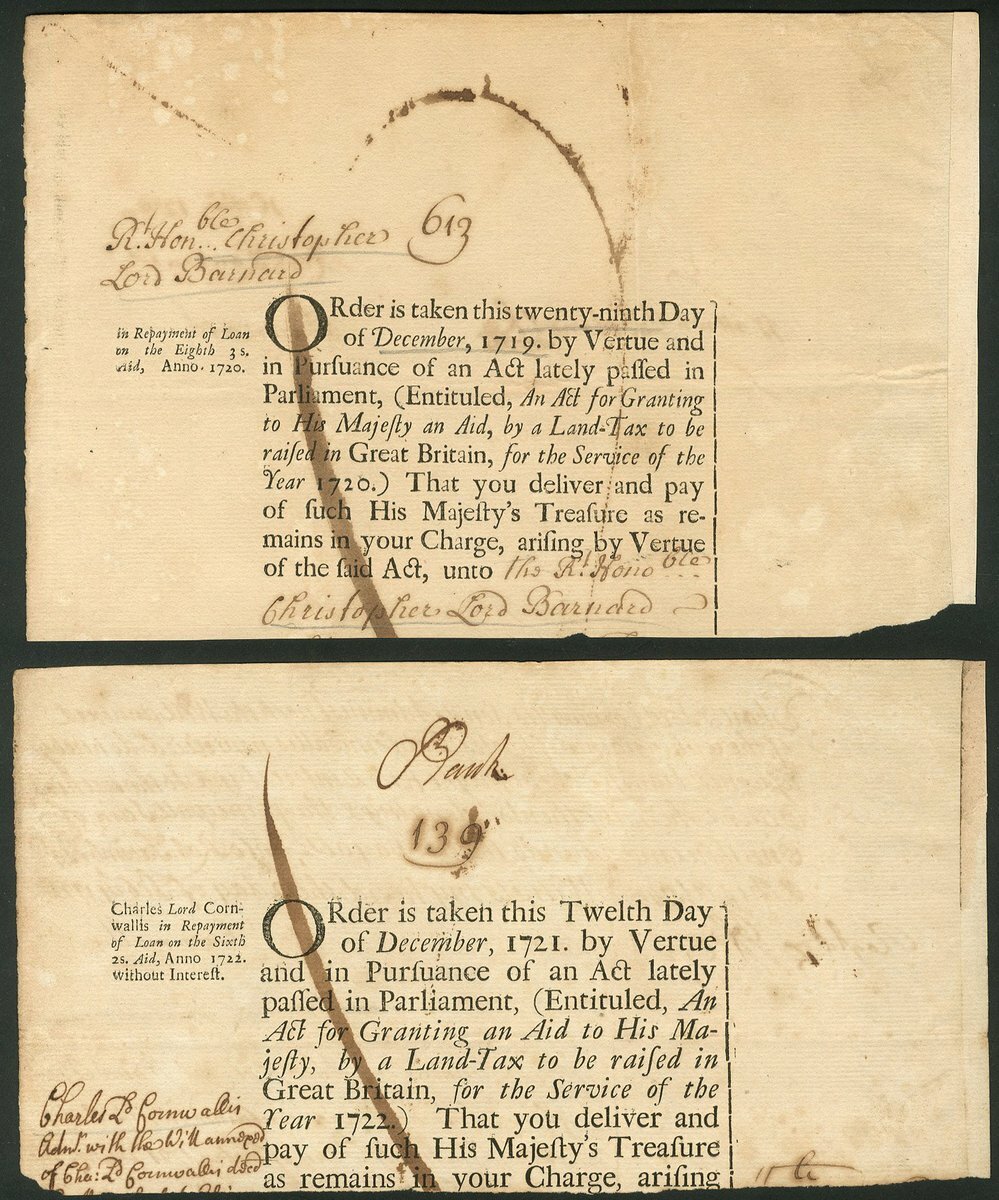 Rt Honble Christopher
Lord Barnard
613
in Repayment of Loan
on the Eighth 3 s.
Aid, Anno. 1720.
ORder is taken this twenty-ninth Day
of December, 1719. by Vertue and
in Pursuance of an Act lately paſſed in
Parliament, (Entituled, An Act for Granting
to His Majeſty an Aid, by a Land-Tax to be
raiſed in Great Britain, for the Service of the
Year 1720.) That you deliver and pay
of ſuch His Majeſty's Treaſure as re-
mains in your Charge, ariſing by Vertue
of the ſaid Act, unto the Rt Honoble
Christopher Lord Barnard
Bank
139
Charles Lord Corn-
wallis in Repayment
of Loan on the Sixth
2s. Aid, Anno 1722.
without Intereſt.
ORder is taken this Twelth Day
of December, 1721. by Vertue
and in Purſuance of an Act lately
paſſed in Parliament, (Entituled, An
Act for Granting an Aid to His Ma-
jeſty, by a Land-Tax to be raiſed in
Great Britain, for the Service of the
Year 1722.) That you deliver and
pay of ſuch His Majeſty's Treaſure
as remains in your Charge, ariſing
Charles Ld Cornwallis
Admr. with the Will annexed
of Cha: Ld Cornwallis decd